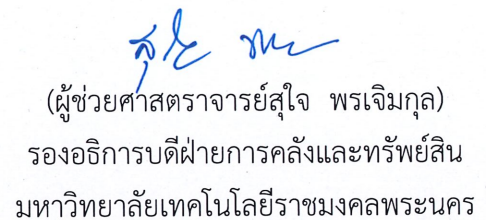 (ผู้ช่วยศาสตราจารย์สุใจ พรเจิมกุล)
รองอธิการบดีฝ่ายการคลังและทรัพย์สิน
มหาวิทยาลัยเทคโนโลยีราชมงคลพระนคร